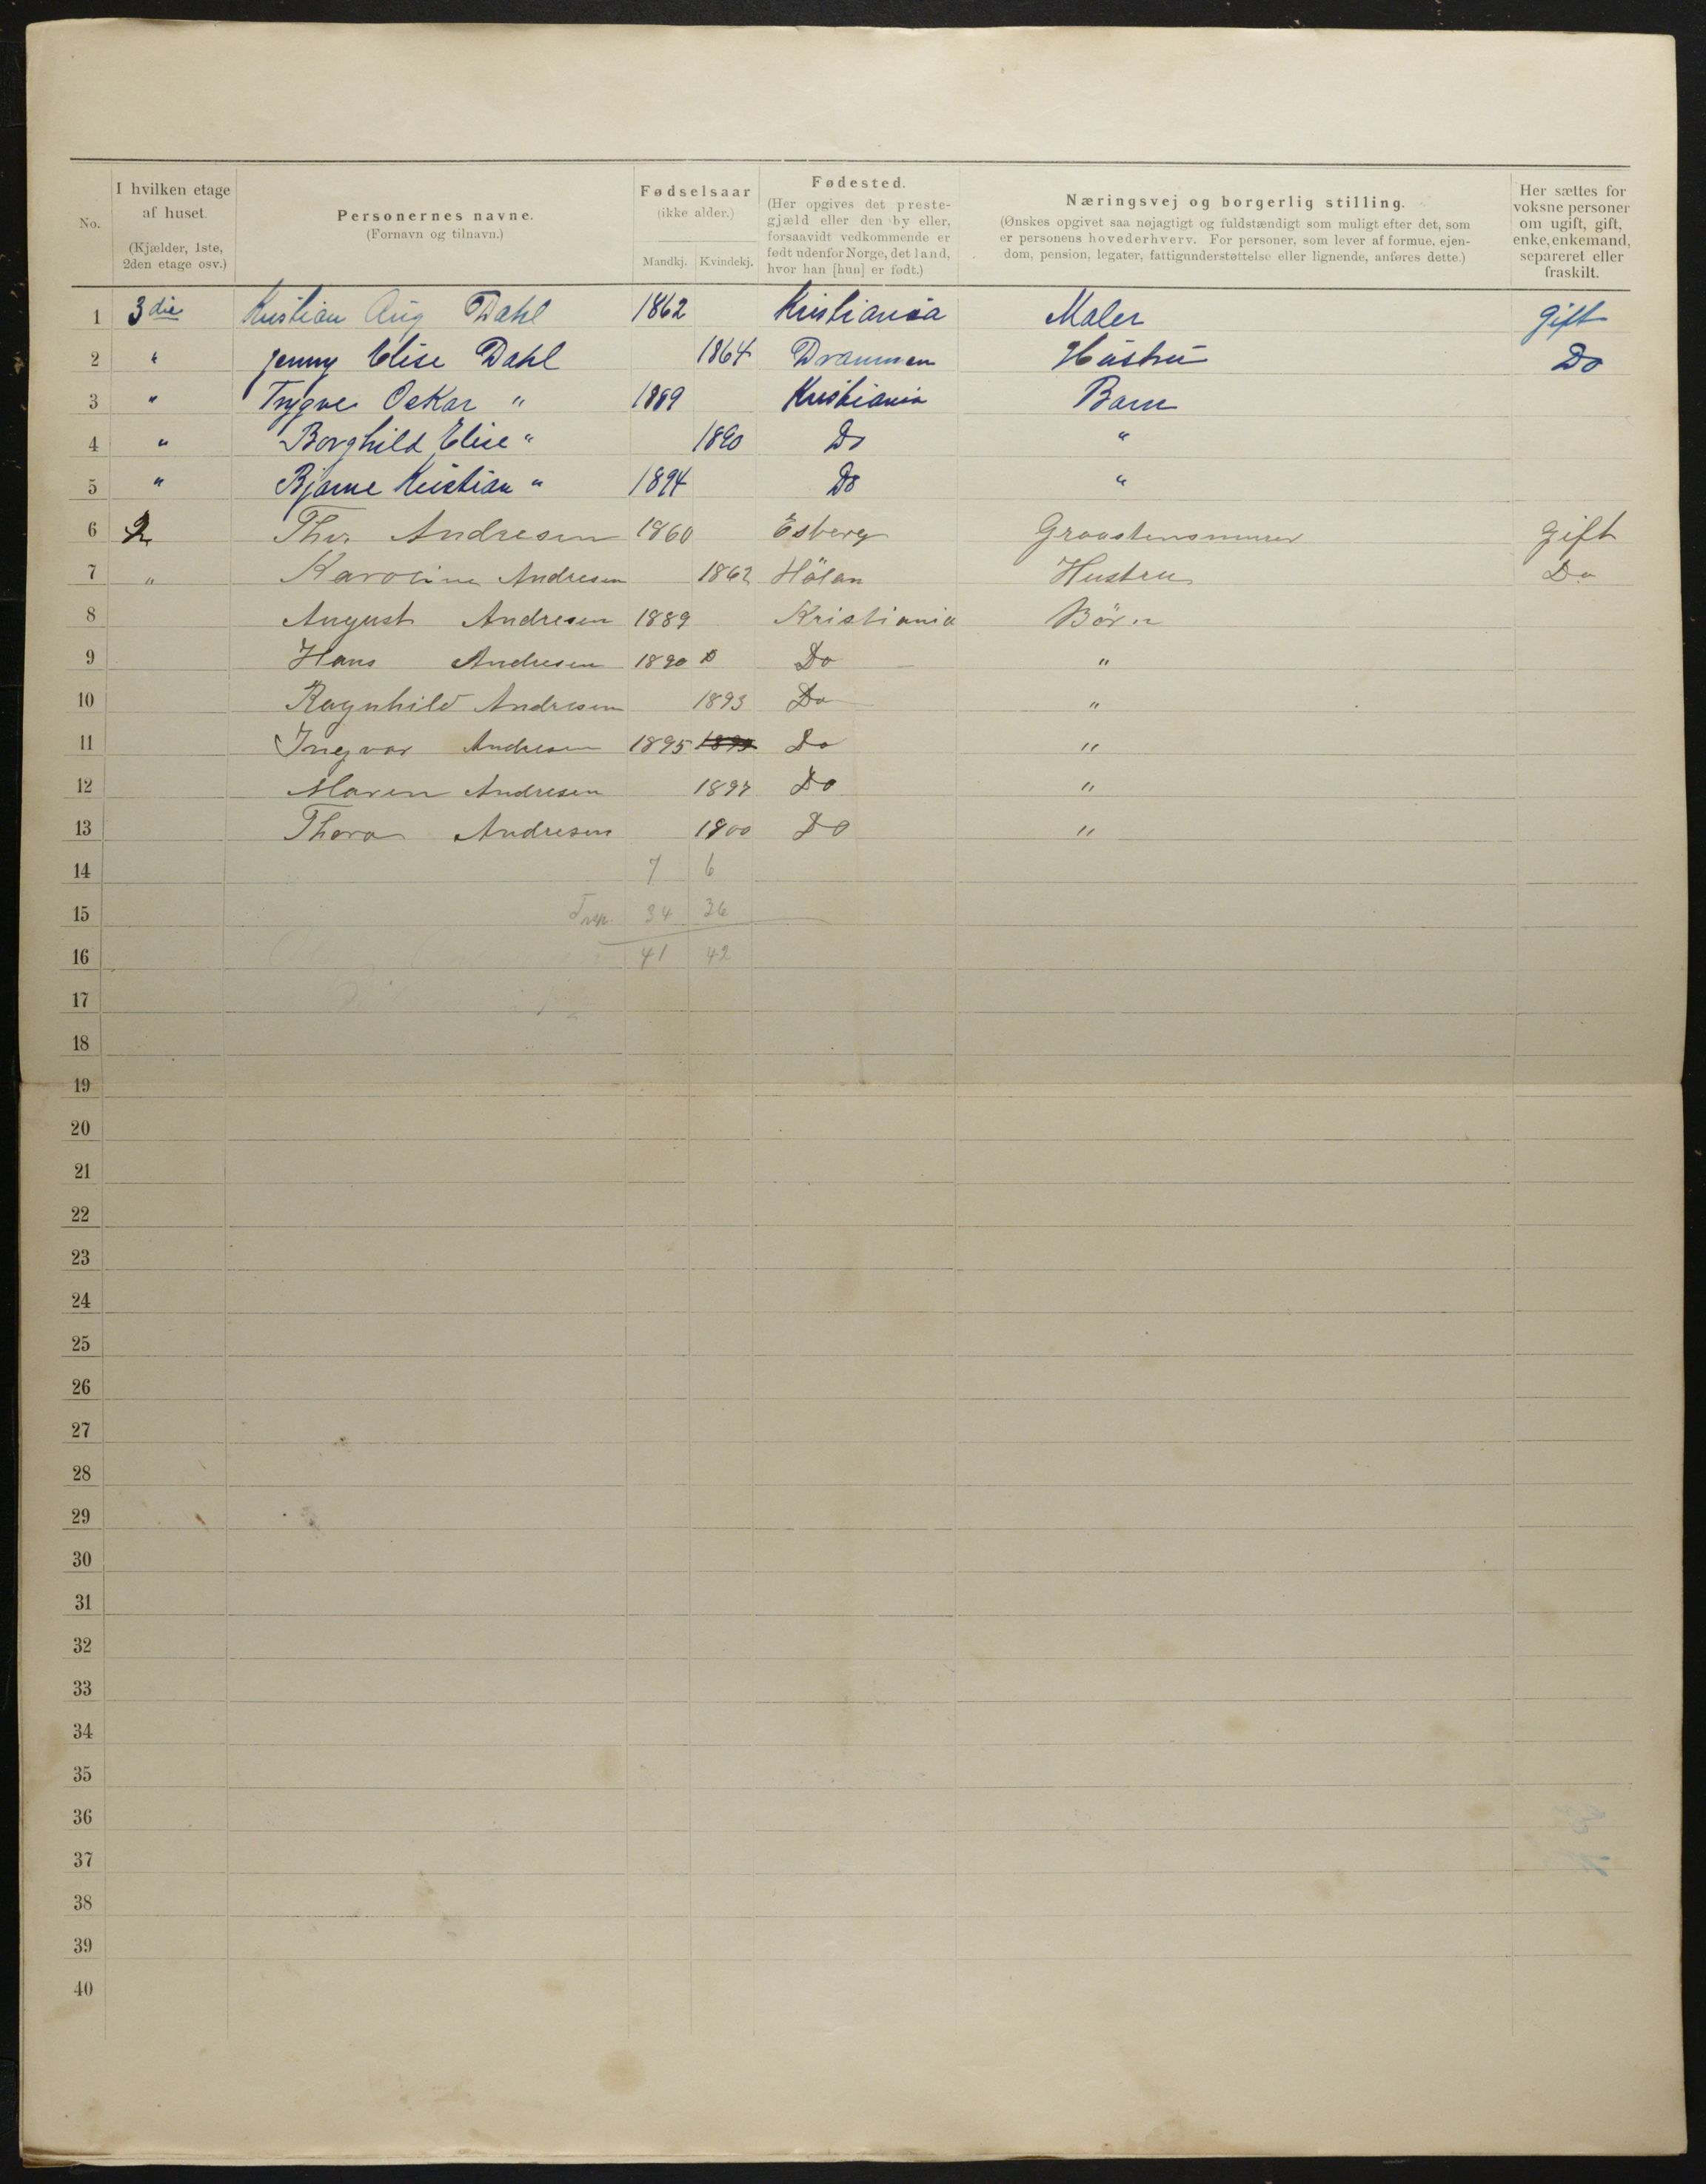 No. I hvilken etage af huset. (Kjælder, 1ste, 2den etage osv.) Personernes navne. (Fornavn og tilnavn.) Fødselsaar (ikke alder.) Mandkj. Kvindekj. Fødested. (Her opgives det prestegjæld eller den by eller, forsaavidt vedkommende er født udenfor Norge, det land, hvor han [hun] er født.) Næringsvej og borgerlig stilling. (Ønskes opgivet saa nøjagtigt og fuldstændigt som muligt efter det, som er personens hovederhverv. For personer, som lever af formue, ejendom, pension, legater, fattigunderstøttelse eller lignende, anføres dette.) Her sættes for voksne personer om ugift, gift, enke, enkemand, separeret eller fraskilt.
1 3die Kristian Aug Dahl 1862 Kristiania Maler gift
2 " Jenny Elise Dahl 1864 Drammen Hustru Do
3 " Trygve Oskar " 1889 Kristiania Barn
4 " Borghild Elise " 1890 Do "
5 " Bjarne Kristian " 1894 Do "
6 2 Thv. Andresen 1860 Esberg Graastensmurer gift
7 " Karoline Andresen 1862 Hölan Hustru Do
8 August Andresen 1889 Kristiania Börn
9 Hans Andresen 1890 Do "
10 Ragnhild Andresen 1893 Do "
11 Ingvar Andresen 1895 Do "
12 Maren Andresen 1897 Do "
13 Thora Andresen 1900 Do "
14 7 6
15 34 36
16 41 42
17
18
19
20
21
22
23
24
25
26
27
28
29
30
31
32
33
34
35
36
37
38
39
40